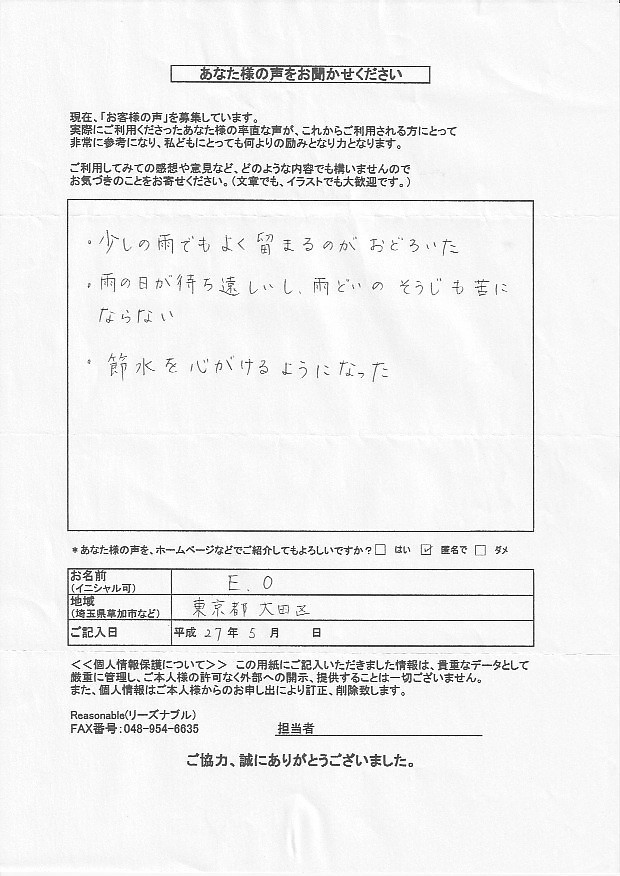 あなた様の声をお聞かせください
現在、「お客様の声」を募集しています。
実際にご利用くださったあなた様の率直な声が、これからご利用される方にとって
非常に参考になり、私どもにとっても何よりの励みとなり力となります。
ご利用してみての感想や意見など、どのような内容でも構いませんので
お気づきのことをお寄せください。(文章でも、イラストでも大歓迎です。)
・少しの雨でもよく留まるのがおどろいた
・雨の日が待ち遠しいし、雨どいのそうじも苦に
ならない
・節水を心がけるようになった
*あなた様の声を、ホームページなどでご紹介してもよろしいですか?□ はい ☑ 匿名で □ ダメ
お名前
(イニシャル可)
E.O
地域
(埼玉県草加市など)
東京都 大田区
ご記入日 平成 27 年 5 月 日
<<個人情報保護について>> この用紙にご記入いただきました情報は、貴重なデータとして
厳重に管理し、ご本人様の許可なく外部への開示、提供することは一切ございません。
また、個人情報はご本人様からのお申し出により訂正、削除致します。
Reasonable(リーズナブル)
FAX番号:048-954-6635 担当者
ご協力、誠にありがとうございました。